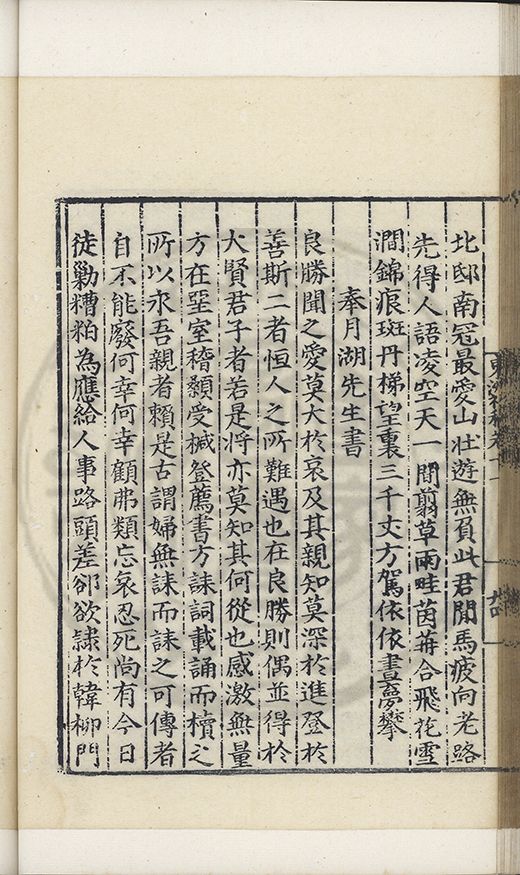 北邸南冠最愛山壯遊無負此君閒馬疲向老路
先得人語凌空天一間翦草雨畦茵苒合飛花雪
澗錦痕斑丹梯望裏三千丈方駕依依晝夢攀
奉月湖先生書
良勝聞之愛莫大於哀及其親知莫深於進登於
善斯二者恒人之所難遇也在良勝則偶並得於
大賢君子者若是將亦莫知其何從也感激無量
方在堊室稽顙受椷登薦書方誄詞載誦而櫝之
所以永吾親者賴是古謂婦無誄而誄之可傳者
自不能廢何幸何幸顧弗類忘哀忍死尚有今日
徒勦糟粕為應給人事路頭差郤欲隷於韓柳門
東洲初稿卷